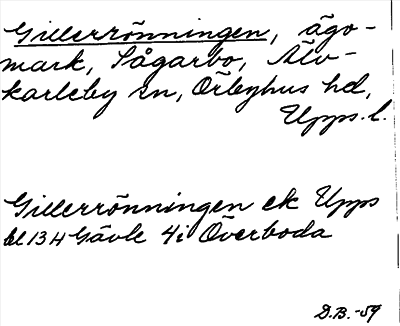 Gillerrönningen, ägo-
mark, Sågarbo, Älv-
karleby sn, Örbyhus hd,
Upps. l.
Gillerrönningen ek Upps
bl 13 H Gävle 4i Överboda
D.B. -59